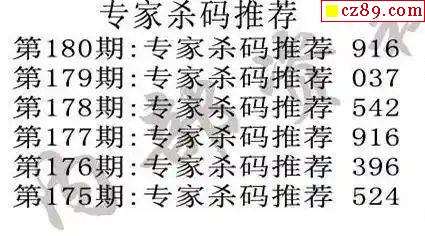 专家杀码推荐
cz89.com
第180期:专家杀码推荐 916
第179期:专家杀码推荐 037
第178期:专家杀码推荐 542
第177期:专家杀码推荐 916
第176期:专家杀码推荐 396
第175期:专家杀码推荐 524